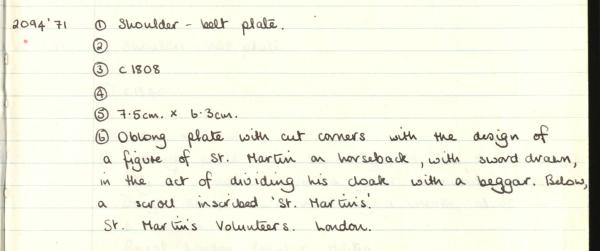 2094'71 ① Shoulder-belt plate.
②
③ c1808
④
⑤ 7.5cm. × 6.3cm.
⑥ Oblong plate with cut corners with the design of
a figure of St. Martin on horseback, with sword drawn,
in the act of dividing his cloak with a beggar. Below,
a scroll inscribed 'St. Martin's'.
St. Martin's Volunteers. London.